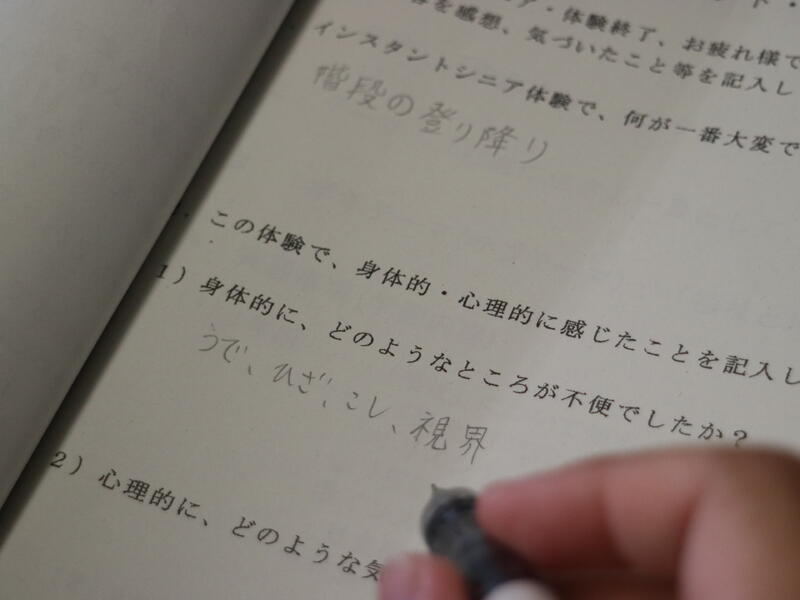 ・体験終了、お疲れ様で
を感想、気づいたこと等を記入し
インスタントシニア体験で、何が一番大変で
階段の登り降り
この体験で、身体的・心理的に感じたことを記入し
1）身体的に、どのようなところが不便でしたか？
うで、ひざ、こし、視界
2）心理的に、どのような気